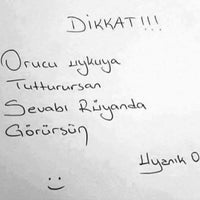 DİKKAT !!!
Orucu uykuya
Tutturursan
Sevabı Rüyanda
Görürsün
Uyanık O
:)